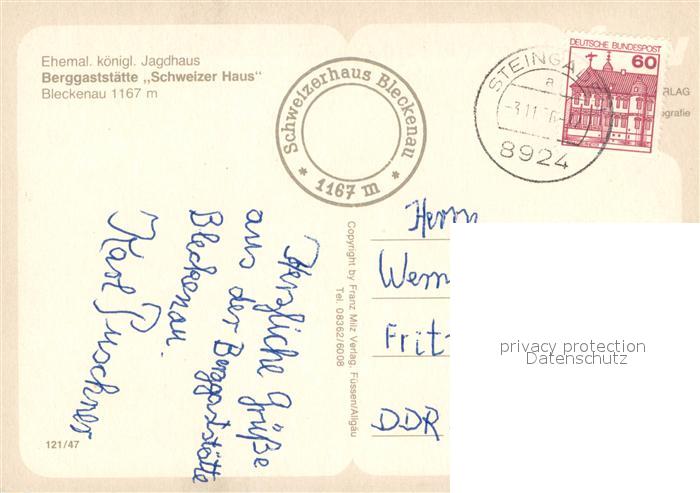 Ehemal. königl. Jagdhaus
Berggaststätte „Schweizer Haus"
Bleckenau 1167 m
Schweizerhaus Bleckenau
* 1167 m *
STEINGA
a
-3.11.
8924
DEUTSCHE BUNDESPOST
60
RLAG
ografie
Herzliche Grüße
aus der Berggaststätte
Bleckenau.
Karl
Copyright by Franz Milz Verlag, Füssen/Allgäu
Tel. 08362/6008
Herrn
Wern
Fritz
DDR
privacy protection
Datenschutz
121/47